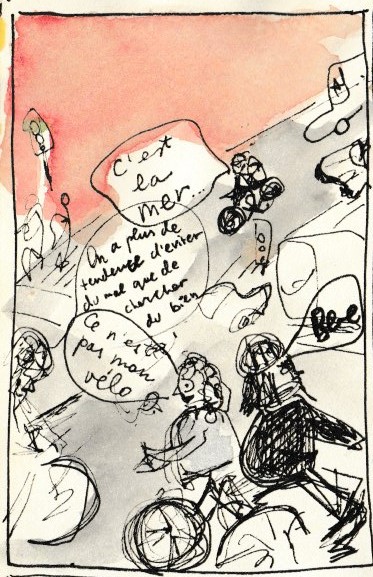 C'est
la
mer...
On a plus de
tendence d'eviter
du mal que de
chercher
du bien
Ce n'est
pas mon
vélo